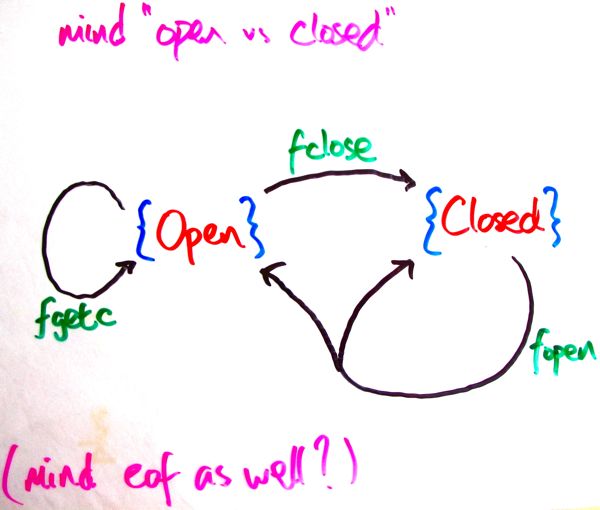 mind "open vs closed"
fclose
{Open}
{Closed}
fgetc
fopen
(mind eof as well?)